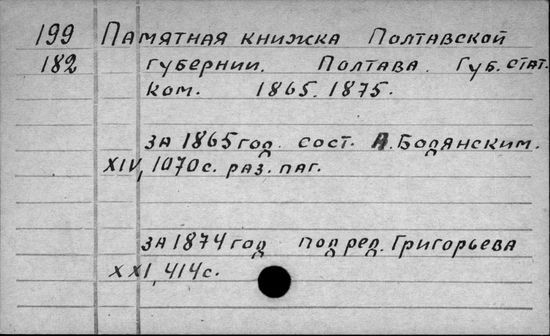 199 Памятная книжка Полтавской
182 губернии. Полтава. Губ. стат.
ком. 1865. 1875.
за 1865 год. сост. А. Бодянским.
XIV, 1070 с. раз. паг.
за 1874 год под ред. Григорьева
XXI, 414 с.